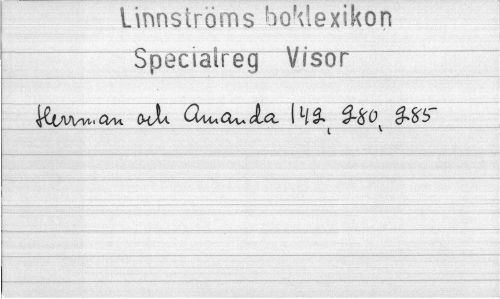 Linnströms boklexikon
Specialreg Visor
Herrman och Amanda 142, 280, 285